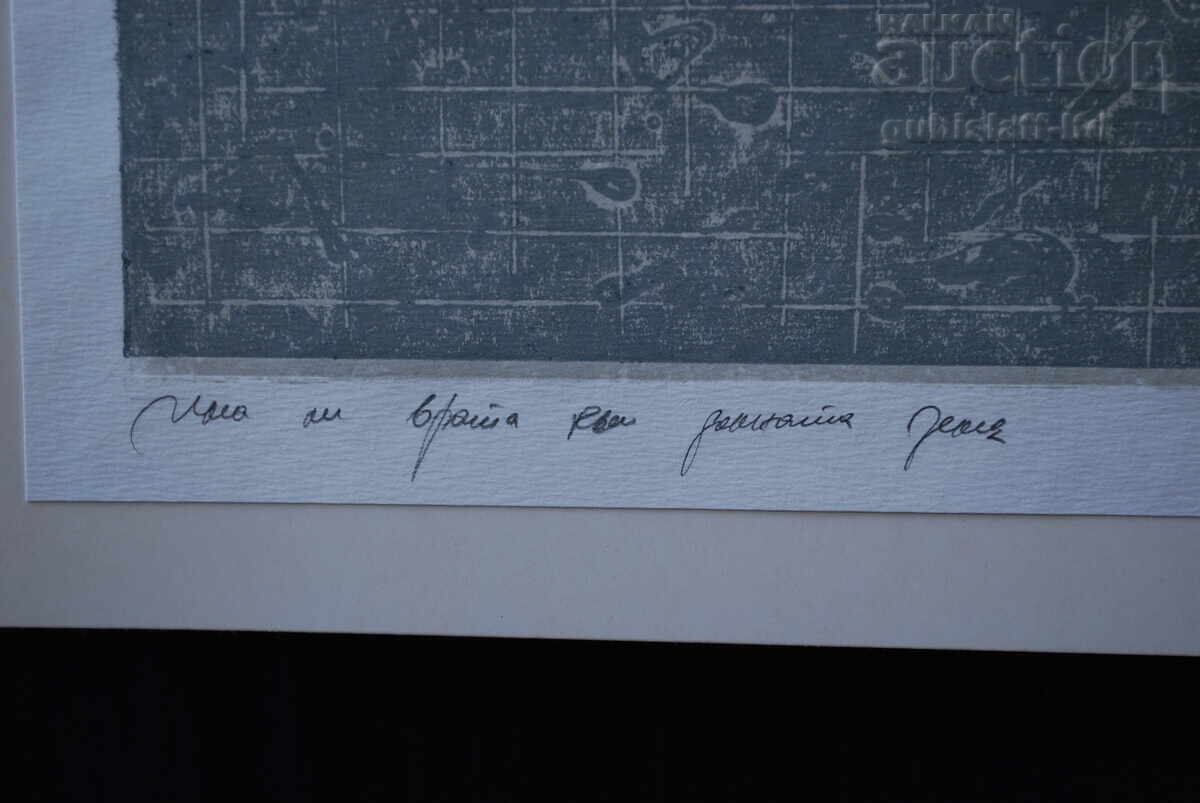 BALKAN
auction
gubislaff-ltd
Има ли врата към долната земя